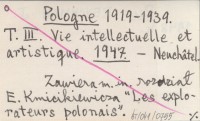 Pologne 1919-1939.
T. III. Vie intellectuelle et
artistique. 1947 - Neuchâtel.
Zawiera m. in. rozdział
E. Kmicikiewicza "Les explo-
rateurs polonais".